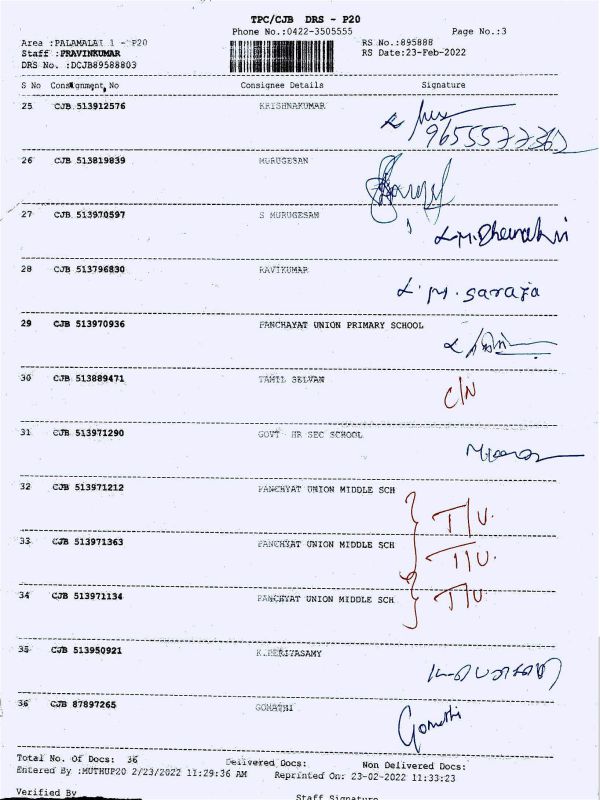 TPC/CJB DRS - P20
Phone No.:0422-3505555 Page No.:3
Area :PALAMALAI 1 - P20 RS No.:895888
Staff :PRAVINKUMAR RS Date:23-Feb-2022
DRS No. :DCJB89588803
S No Consignment No Consignee Details Signature
25 CJB 513912576 KRISHNAKUMAR
26 CJB 513819839 MURUGESAN
27 CJB 513970597 S MURUGESAN
28 CJB 513796830 RAVIKUMAR
L.M. Saraja
29 CJB 513970936 PANCHAYAT UNION PRIMARY SCHOOL
30 CJB 513889471 TAMIL SELVAN
C/N
31 CJB 513971290 GOVT HR SEC SCHOOL
32 CJB 513971212 PANCHYAT UNION MIDDLE SCH
T/U.
33 CJB 513971363 PANCHYAT UNION MIDDLE SCH
T/U.
34 CJB 513971134 PANCHYAT UNION MIDDLE SCH
T/U
35 CJB 513950921 K.PERIYASAMY
36 CJB 87897265 GOMATHI
Gomathi
Total No. Of Docs: 36 Delivered Docs: Non Delivered Docs:
Entered By :MUTHUP20 2/23/2022 11:29:36 AM Reprinted On: 23-02-2022 11:33:23
Verified By Staff Signature